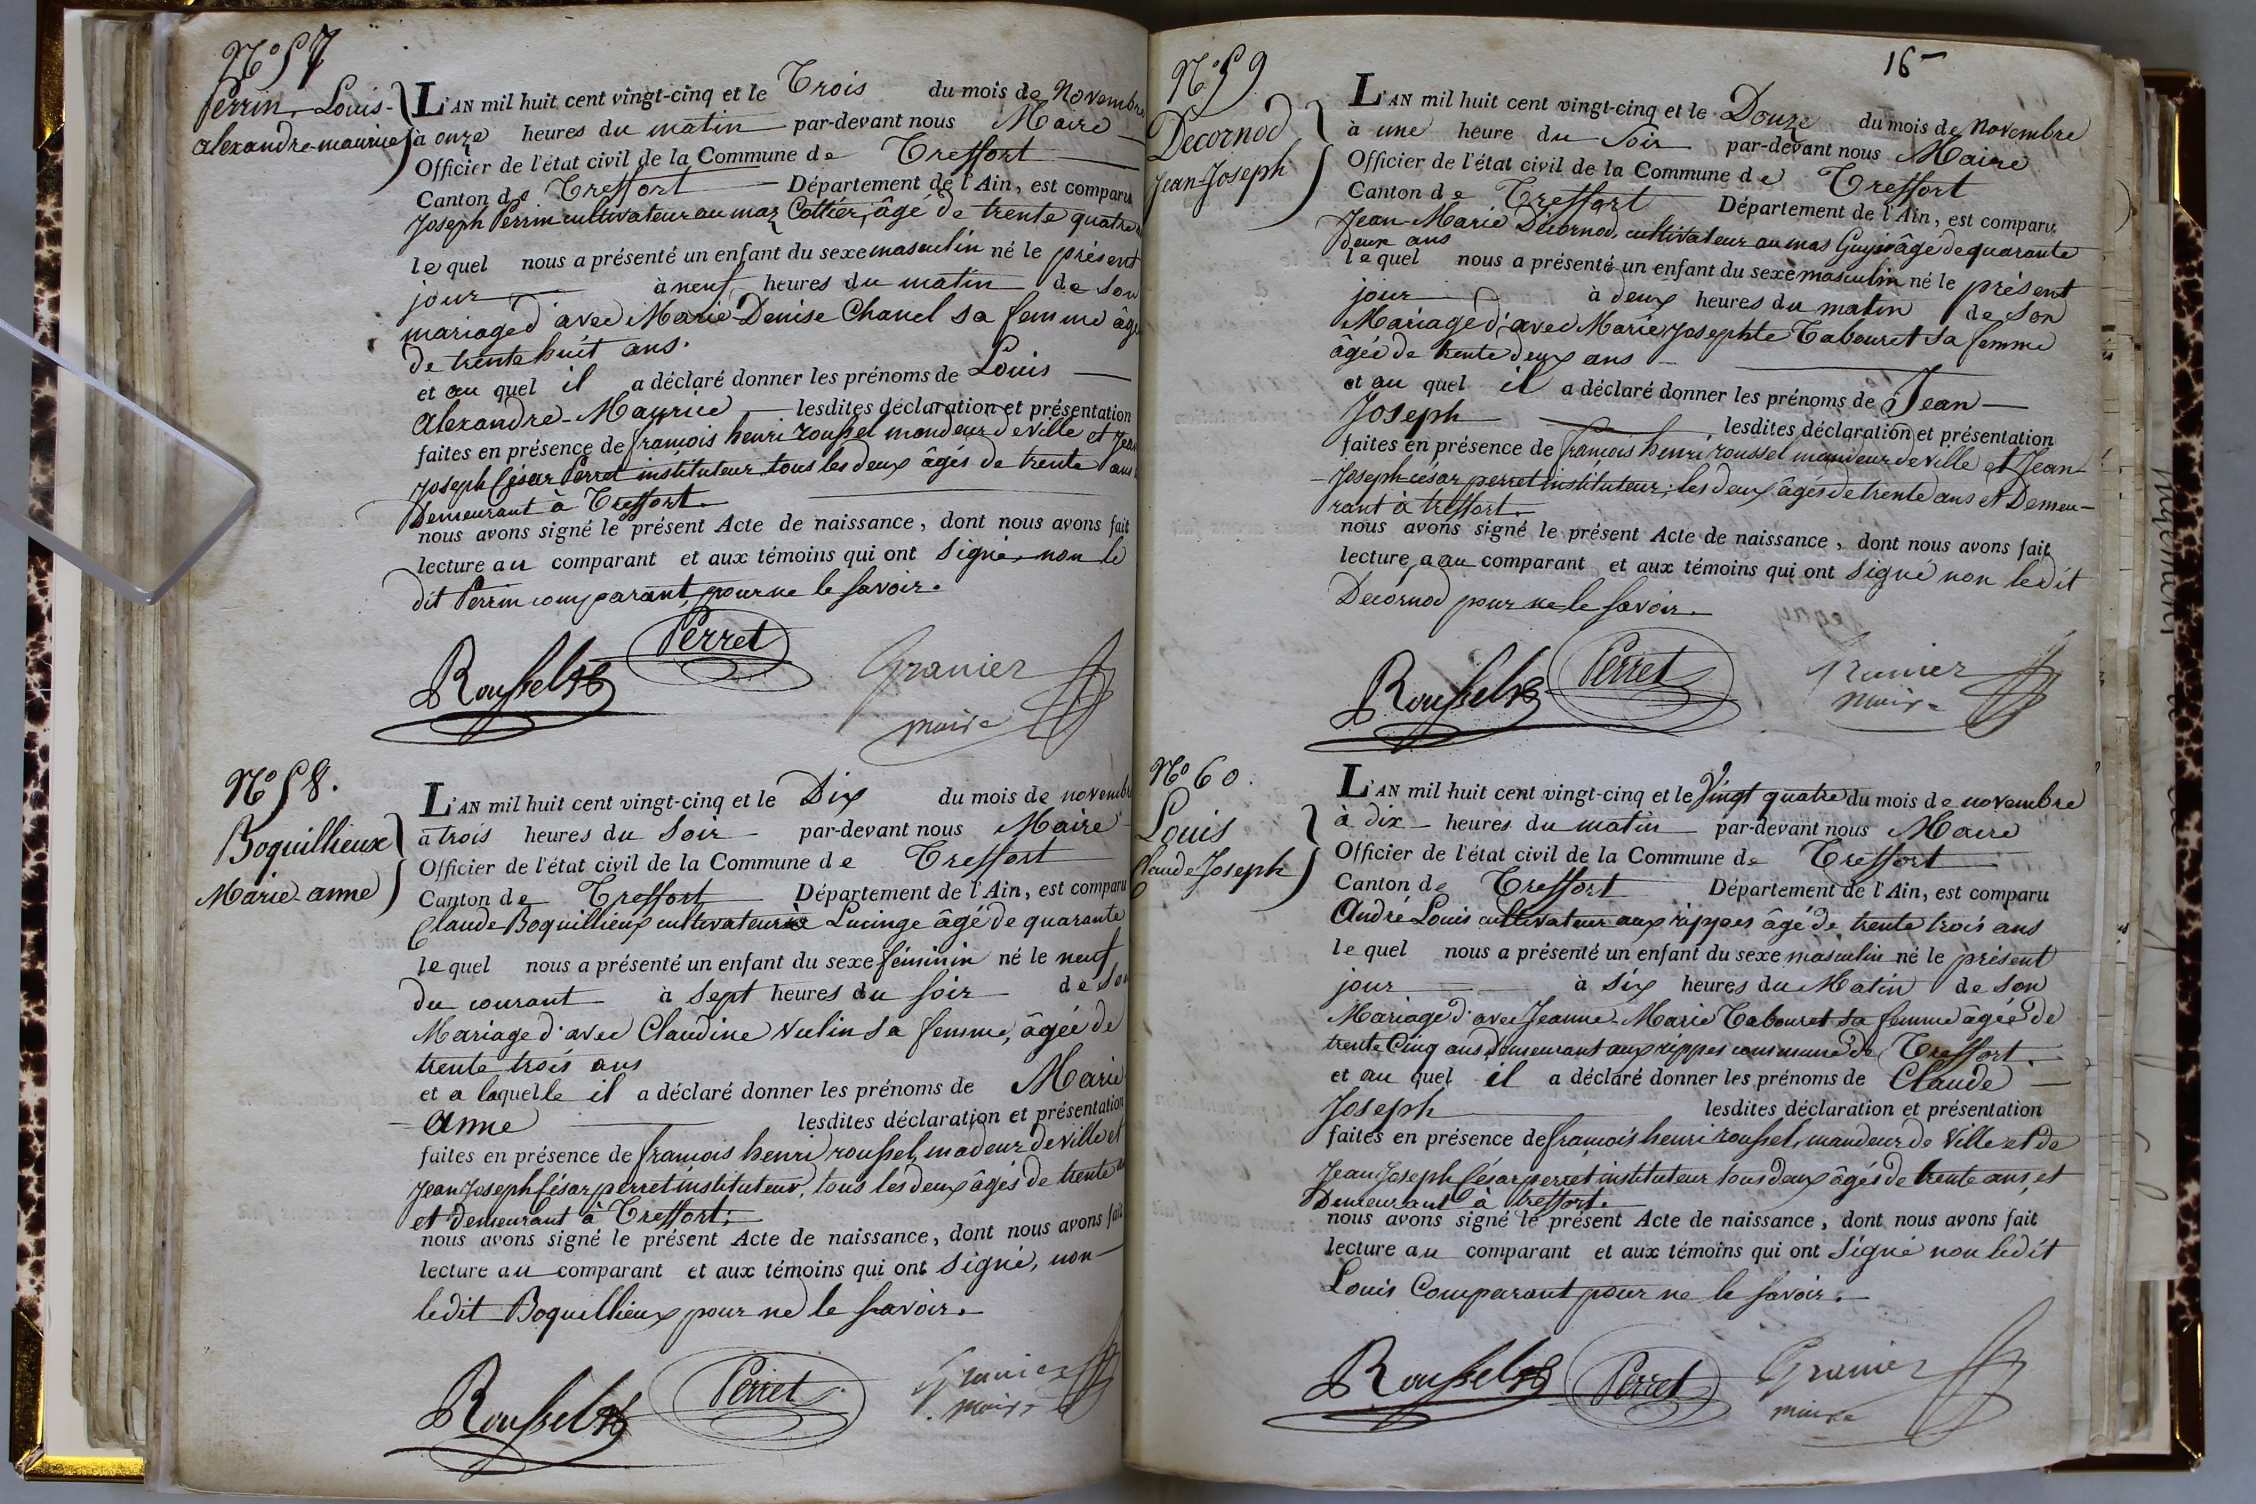 N° 57
Perrin Louis-
alexandre-maurice
L'AN mil huit cent vingt-cinq et le Trois du mois de Novembre
à onze heures du matin par-devant nous Maire
Officier de l'état civil de la Commune de Treffort
Canton de Treffort Département de l'Ain, est comparu
Joseph Perrin cultivateur au maz Cottier, âgé de trente quatre
le quel nous a présenté un enfant du sexe masculin né le présent
jour à neuf heures du matin de son
mariage d'avec Marie Denise Chanel sa femme âgé
de trente huit ans.
et au quel il a déclaré donner les prénoms de Louis
Alexandre-Maurice lesdites déclaration et présentation
faites en présence de françois henri roussel mandeur de ville et Jean
Joseph César Perret instituteur tous les deux âgés de trente ans
Demeurant à Treffort.
nous avons signé le présent Acte de naissance, dont nous avons fait
lecture au comparant et aux témoins qui ont signé, non le
dit Perrin comparant, pour ne le savoir.
Roussel Perret Granier
maire
N° 58.
Boquillieux
Marie-anne
L'AN mil huit cent vingt-cinq et le Dix du mois de novembre
à trois heures du Soir par-devant nous Maire
Officier de l'état civil de la Commune de Treffort
Canton de Treffort Département de l'Ain, est comparu
Claude Boquillieux cultivateur à Lucinge âgé de quarante
le quel nous a présenté un enfant du sexe féminin né le neuf
du courant à Sept heures du soir de son
Mariage d'avec Claudine Vulin sa femme, âgée de
trente trois ans
et a laquelle il a déclaré donner les prénoms de Marie
Anne lesdites déclaration et présentation
faites en présence de françois henri roussel, madeur de ville et
Jean Joseph César perret instituteur, tous les deux âgés de trente
et demeurant à Treffort;
nous avons signé le présent Acte de naissance, dont nous avons fait
lecture au comparant et aux témoins qui ont signé, non
ledit Boquillieux pour ne le savoir.
Roussel Perret Granier
maire
16
N° 59.
Decornod
Jean-Joseph
L'AN mil huit cent vingt-cinq et le Douze du mois de Novembre
à une heure du Soir par-devant nous Maire
Officier de l'état civil de la Commune de Treffort
Canton de Treffort Département de l'Ain, est comparu
Jean-Marie Décornod, cultivateur au mas âgé de quarante
deux ans
le quel nous a présenté un enfant du sexe masculin né le présent
jour à deux heures du matin de son
Mariage d'avec Marie Josephte Tabouret sa femme
âgée de trente deux ans
et au quel il a déclaré donner les prénoms de Jean
Joseph lesdites déclaration et présentation
faites en présence de françois henri roussel mandeur de ville et Jean-
Joseph césar perret instituteur; les deux âgés de trente ans et Demeu-
rant à treffort.
nous avons signé le présent Acte de naissance, dont nous avons fait
lecture a au comparant et aux témoins qui ont signé non ledit
Decornod pour ne le savoir.
Roussel Perret Granier
maire
N° 60.
Louis
Claude Joseph
L'AN mil huit cent vingt-cinq et le Vingt quatre du mois de novembre
à dix heures du matin par-devant nous Maire
Officier de l'état civil de la Commune de Treffort
Canton de Treffort Département de l'Ain, est comparu
André Louis cultivateur aux rippes âgé de trente trois ans
le quel nous a présenté un enfant du sexe masculin né le présent
jour à six heures du Matin de son
Mariage d'avec Jeanne-Marie Tabouret sa femme âgée de
trente Cinq ans demeurant aux rippes commune de Treffort.
et au quel il a déclaré donner les prénoms de Claude
Joseph lesdites déclaration et présentation
faites en présence de françois henri roussel, mandeur de Ville et de
Jean Joseph César perret instituteur tous deux âgés de trente ans, et
Demeurant à treffort.
nous avons signé le présent Acte de naissance, dont nous avons fait
lecture au comparant et aux témoins qui ont signé non ledit
Louis Comparant pour ne le savoir.
Roussel Perret Granier
maire